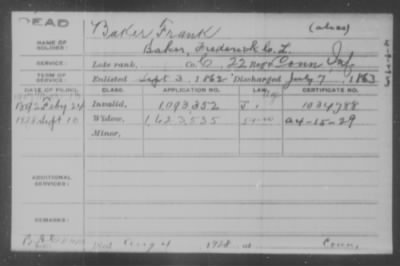 DEAD
NAME OF SOLDIER:
Baker Frank (alias)
Baker, Frederick C. L.
SERVICE:
Late rank, Co. G, 22 Reg't Conn Inf
TERM OF SERVICE:
Enlisted Sept 3, 1862 Discharged July 7, 1863
DATE OF FILING. CLASS. APPLICATION NO. LAW. CERTIFICATE NO.
1892 Feby 24 Invalid, 1,093,352 1034788
1928 Sept 10 Widow, 1,623,535 a4-15-29
Minor,
ADDITIONAL SERVICES:
REMARKS:
Died Aug 4 1928 at Conn.